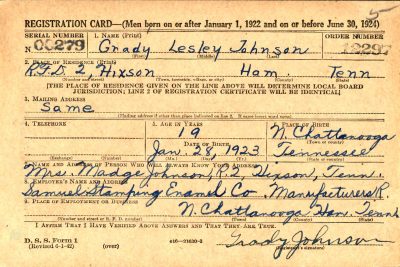 5
REGISTRATION CARD—(Men born on or after January 1, 1922 and on or before June 30, 1924)
SERIAL NUMBER 1. NAME (Print) ORDER NUMBER
N 00279 Grady Lesley Johnson 12297
2. PLACE OF RESIDENCE (Print)
R.F.D. 2, Hixson Ham. Tenn
[THE PLACE OF RESIDENCE GIVEN ON THE LINE ABOVE WILL DETERMINE LOCAL BOARD
JURISDICTION; LINE 2 OF REGISTRATION CERTIFICATE WILL BE IDENTICAL]
3. MAILING ADDRESS
Same
[Mailing address if other than place indicated on line 2. If same insert word same]
4. TELEPHONE 5. AGE IN YEARS 6. PLACE OF BIRTH
19 N. Chattanooga
DATE OF BIRTH
Jan. 28, 1923 Tennessee
(Exchange) (Number) (Mo.) (Day) (Yr.)
7. NAME AND ADDRESS OF PERSON WHO WILL ALWAYS KNOW YOUR ADDRESS
Mrs. Madge Johnson, R.2, Hixson, Tenn.
8. EMPLOYER'S NAME AND ADDRESS
Samuel Stamping Enamel Co. Manufacturers R.
9. PLACE OF EMPLOYMENT OR BUSINESS
N. Chattanooga Ham. Tenn
(Number and street or R. F. D. number) (Town) (County) (State)
I AFFIRM THAT I HAVE VERIFIED ABOVE ANSWERS AND THAT THEY ARE TRUE.
D. S. S. Form 1
(Revised 6-1-42) (over) 16—21630-2 Grady Johnson
(Registrant's signature)